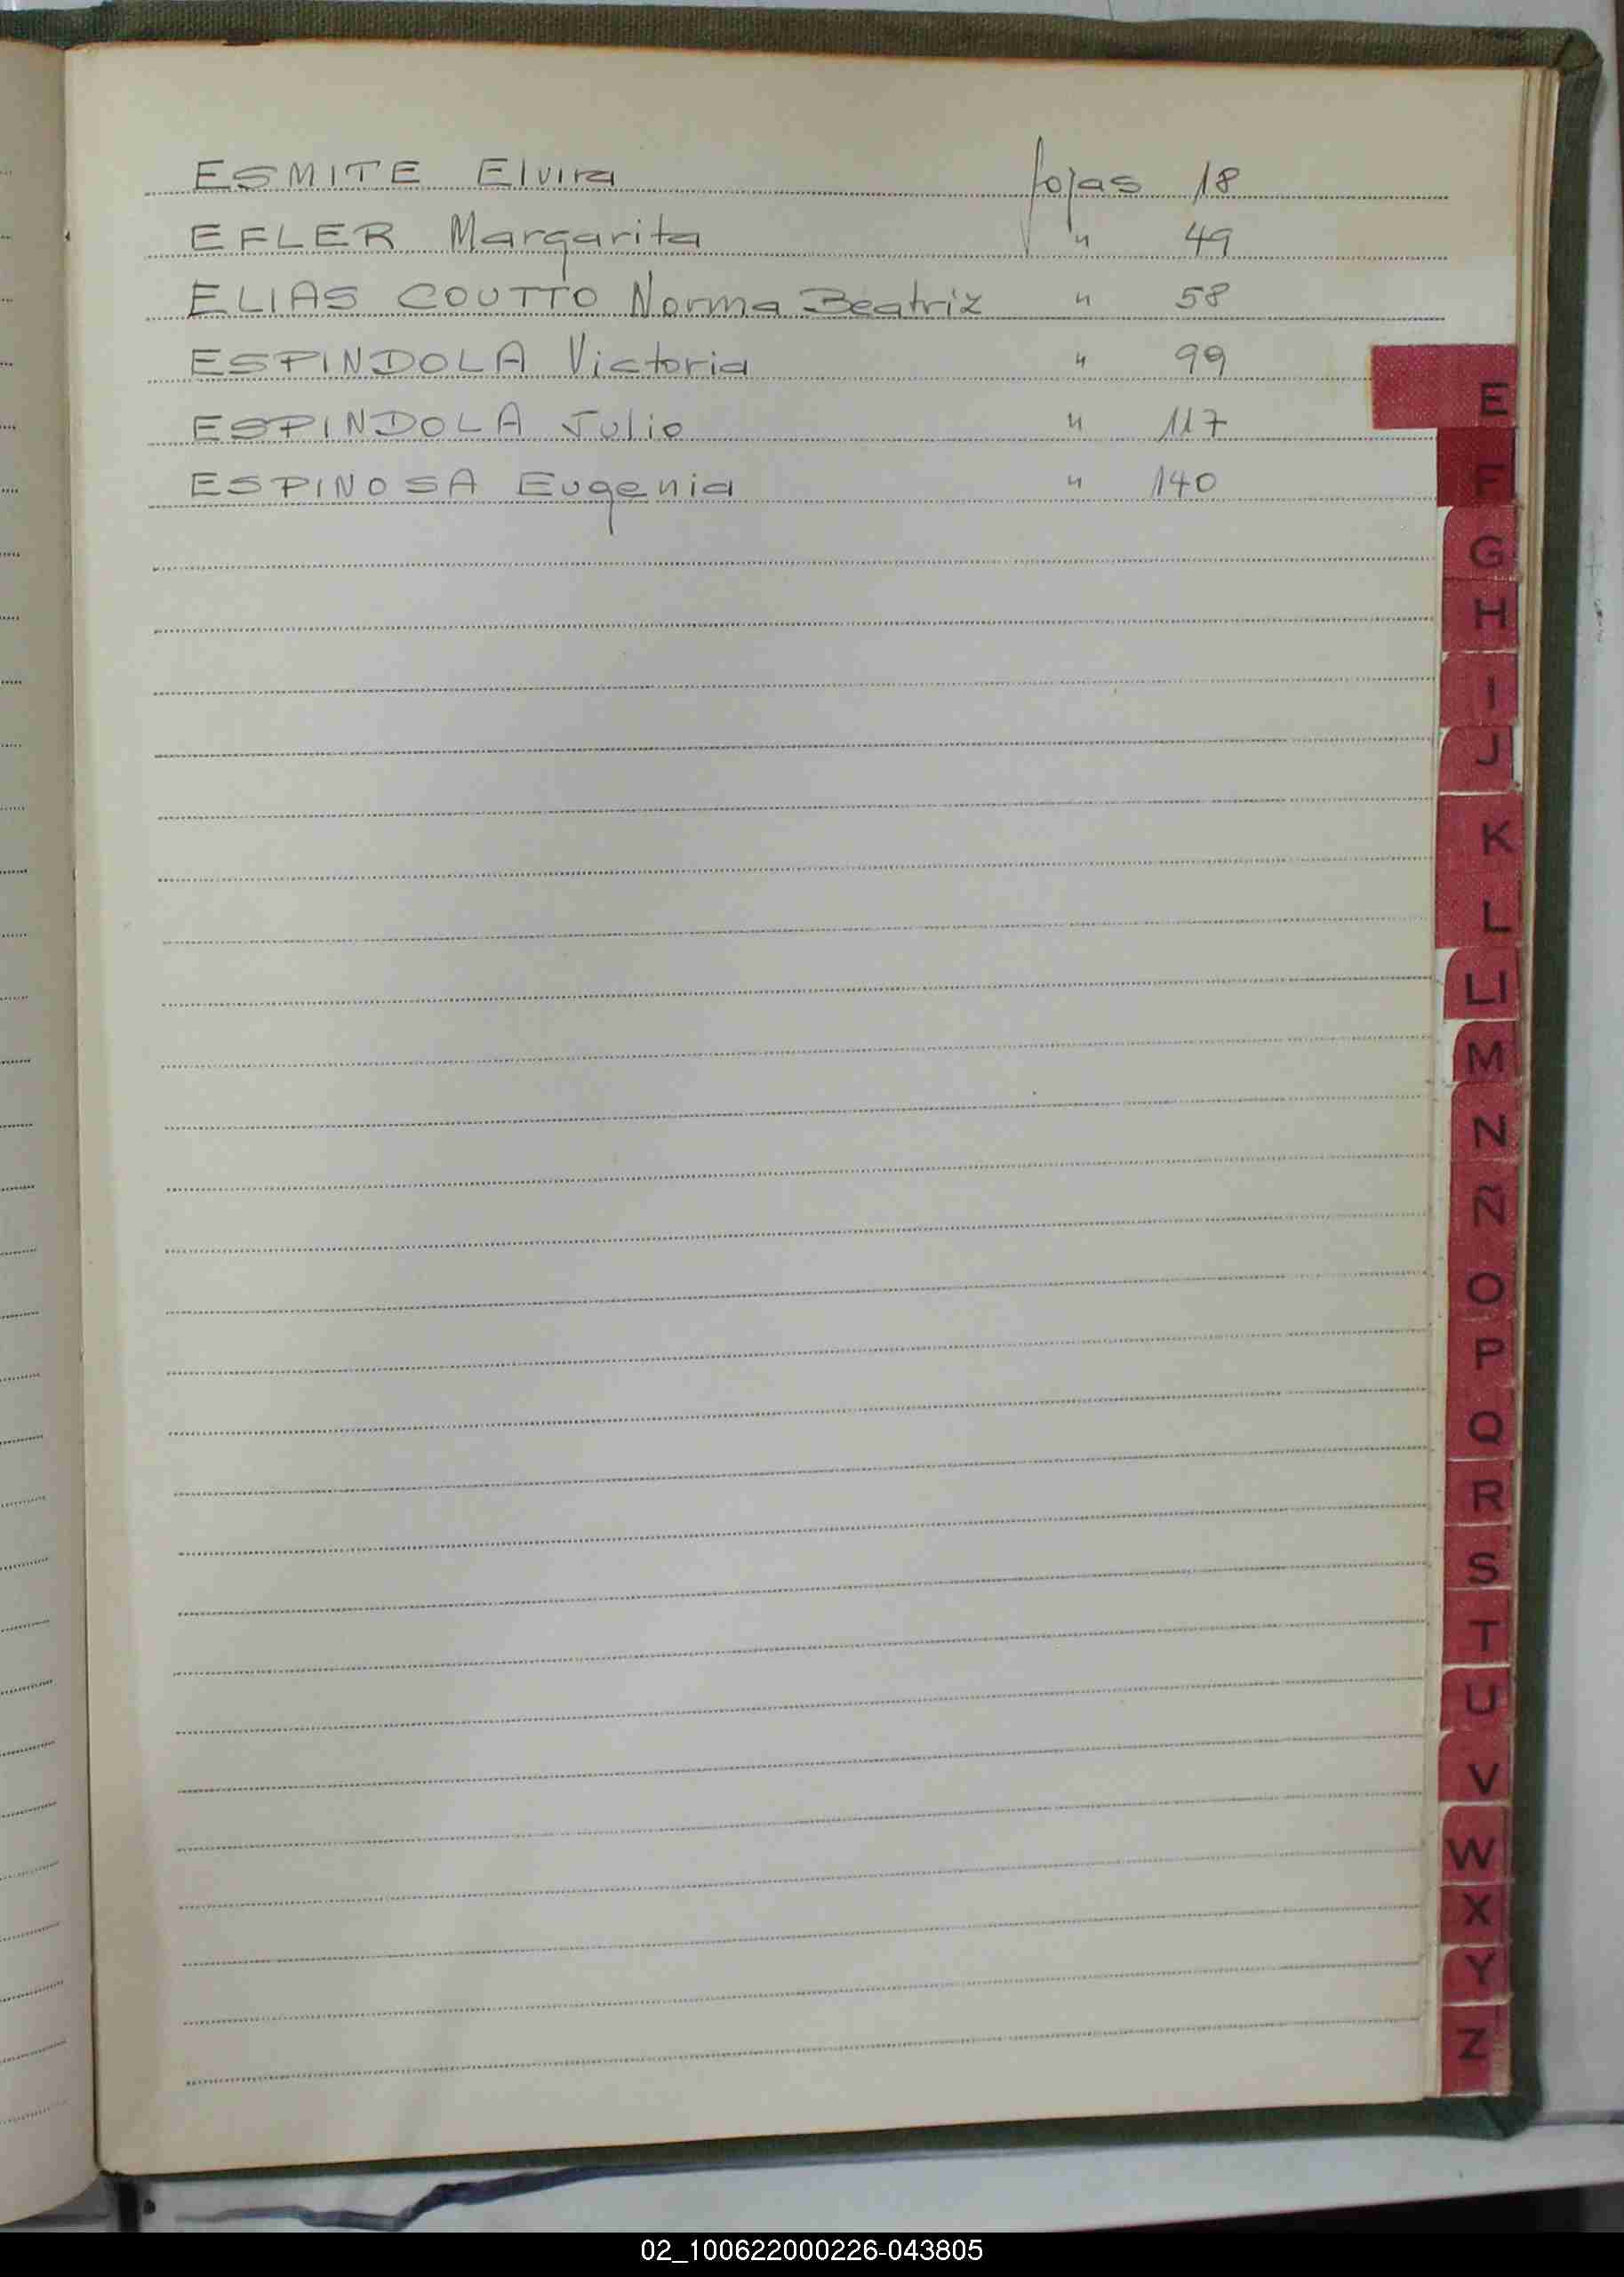 ESMITE Elvira fojas 18
EFLER Margarita " 49
ELIAS COUTTO Norma Beatriz " 58
ESPINDOLA Victoria " 99
ESPINDOLA Julio " 117
ESPINOSA Eugenia " 140
E
F
G
H
I
J
K
L
Ll
M
N
Ñ
O
P
Q
R
S
T
U
V
W
X
Y
Z
02_100622000226-043805